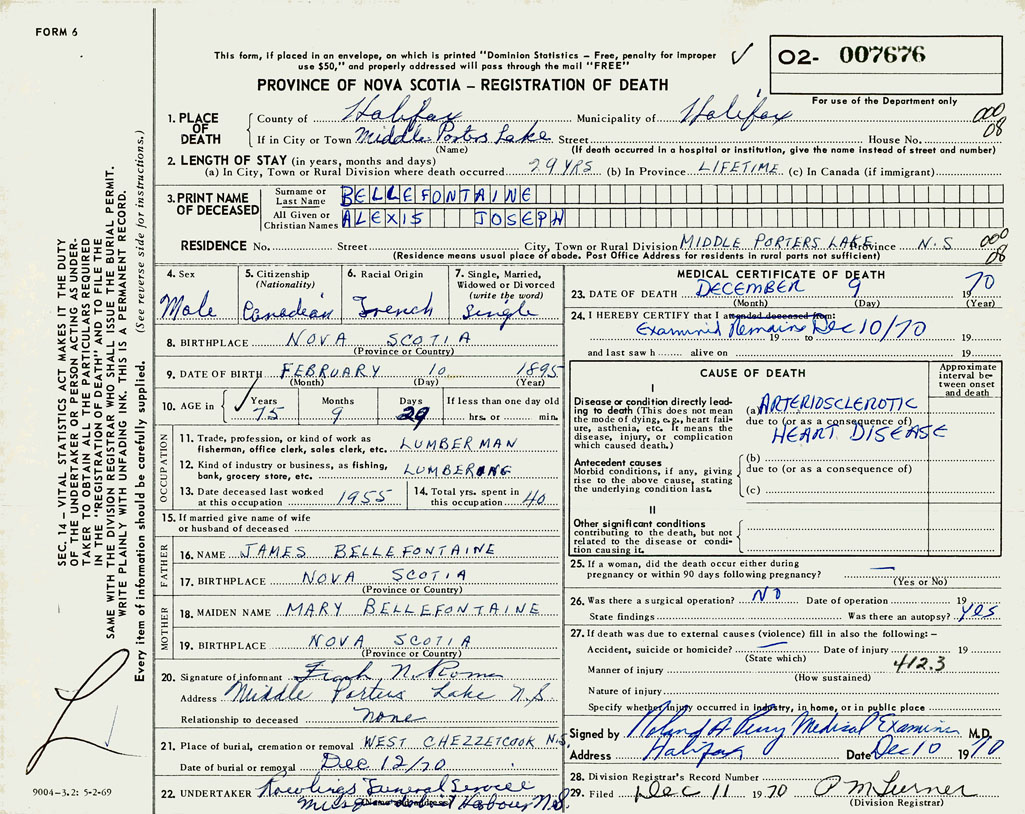 FORM 6
This form, if placed in an envelope, on which is printed "Dominion Statistics – Free, penalty for improper
use $50," and properly addressed will pass through the mail "FREE"
✓
O2- 007676
For use of the Department only
PROVINCE OF NOVA SCOTIA – REGISTRATION OF DEATH
1. PLACE OF DEATH
County of Halifax Municipality of Halifax 000
If in City or Town Middle Porters Lake Street House No. 08
(Name) (If death occurred in a hospital or institution, give the name instead of street and number)
2. LENGTH OF STAY (in years, months and days)
(a) In City, Town or Rural Division where death occurred 29 YRS (b) In Province LIFETIME (c) In Canada (if immigrant)
3. PRINT NAME OF DECEASED
Surname or Last Name BELLEFONTAINE
All Given or Christian Names ALEXIS JOSEPH
RESIDENCE No. Street City, Town or Rural Division MIDDLE PORTERS LAKE Province N.S 000
(Residence means usual place of abode. Post Office Address for residents in rural parts not sufficient) 08
4. Sex
Male
5. Citizenship
(Nationality)
Canadian
6. Racial Origin
French
7. Single, Married,
Widowed or Divorced
(write the word)
Single
8. BIRTHPLACE NOVA SCOTIA
(Province or Country)
9. DATE OF BIRTH FEBRUARY 10 1895
(Month) (Day) (Year)
10. AGE in Years Months Days If less than one day old
✓ 75 9 29 hrs. or min.
OCCUPATION
11. Trade, profession, or kind of work as
fisherman, office clerk, sales clerk, etc. LUMBERMAN
12. Kind of industry or business, as fishing,
bank, grocery store, etc. LUMBERING
13. Date deceased last worked
at this occupation 1955
14. Total yrs. spent in
this occupation 40
15. If married give name of wife
or husband of deceased
FATHER
16. NAME JAMES BELLEFONTAINE
17. BIRTHPLACE NOVA SCOTIA
(Province or Country)
MOTHER
18. MAIDEN NAME MARY BELLEFONTAINE
19. BIRTHPLACE NOVA SCOTIA
(Province or Country)
20. Signature of informant Frank N. Roma
Address Middle Porters Lake N.S
Relationship to deceased None
21. Place of burial, cremation or removal WEST CHEZZETCOOK N.S.
Date of burial or removal Dec 12/70
22. UNDERTAKER Rowlings Funeral Service
Harbour N.S.
MEDICAL CERTIFICATE OF DEATH
23. DATE OF DEATH DECEMBER 9 1970
(Month) (Day) (Year)
24. I HEREBY CERTIFY that I attended deceased from:
Examined Remains Dec 10/70
19 to 19
and last saw h alive on 19
CAUSE OF DEATH
Approximate
interval be-
tween onset
and death
I
Disease or condition directly lead-
ing to death (This does not mean
the mode of dying, e.g., heart fail-
ure, asthenia, etc. It means the
disease, injury, or complication
which caused death.)
(a) ARTERIOSCLEROTIC
due to (or as a consequence of)
HEART DISEASE
Antecedent causes
Morbid conditions, if any, giving
rise to the above cause, stating
the underlying condition last.
(b)
due to (or as a consequence of)
(c)
II
Other significant conditions
contributing to the death, but not
related to the disease or condi-
tion causing it.
25. If a woman, did the death occur either during
pregnancy or within 90 days following pregnancy? —
(Yes or No)
26. Was there a surgical operation? NO Date of operation 19
State findings Was there an autopsy? YES
27. If death was due to external causes (violence) fill in also the following:–
Accident, suicide or homicide? — Date of injury 19
(State which) 412.3
Manner of injury
(How sustained)
Nature of injury
Specify whether injury occurred in industry, in home, or in public place
Signed by Roland A Perry Medical Examiner M.D.
Address Halifax Date Dec 10 1970
28. Division Registrar's Record Number
29. Filed Dec 11 1970 P M Turner
(Division Registrar)
SEC. 14 – VITAL STATISTICS ACT MAKES IT THE DUTY
OF THE UNDERTAKER OR PERSON ACTING AS UNDER-
TAKER TO OBTAIN ALL THE PARTICULARS REQUIRED
IN THE "REGISTRATION OF DEATH" AND TO FILE THE
SAME WITH THE DIVISION REGISTRAR WHO SHALL ISSUE THE BURIAL PERMIT.
WRITE PLAINLY WITH UNFADING INK. THIS IS A PERMANENT RECORD.
Every item of information should be carefully supplied. (See reverse side for instructions.)
9004-3.2: 5-2-69